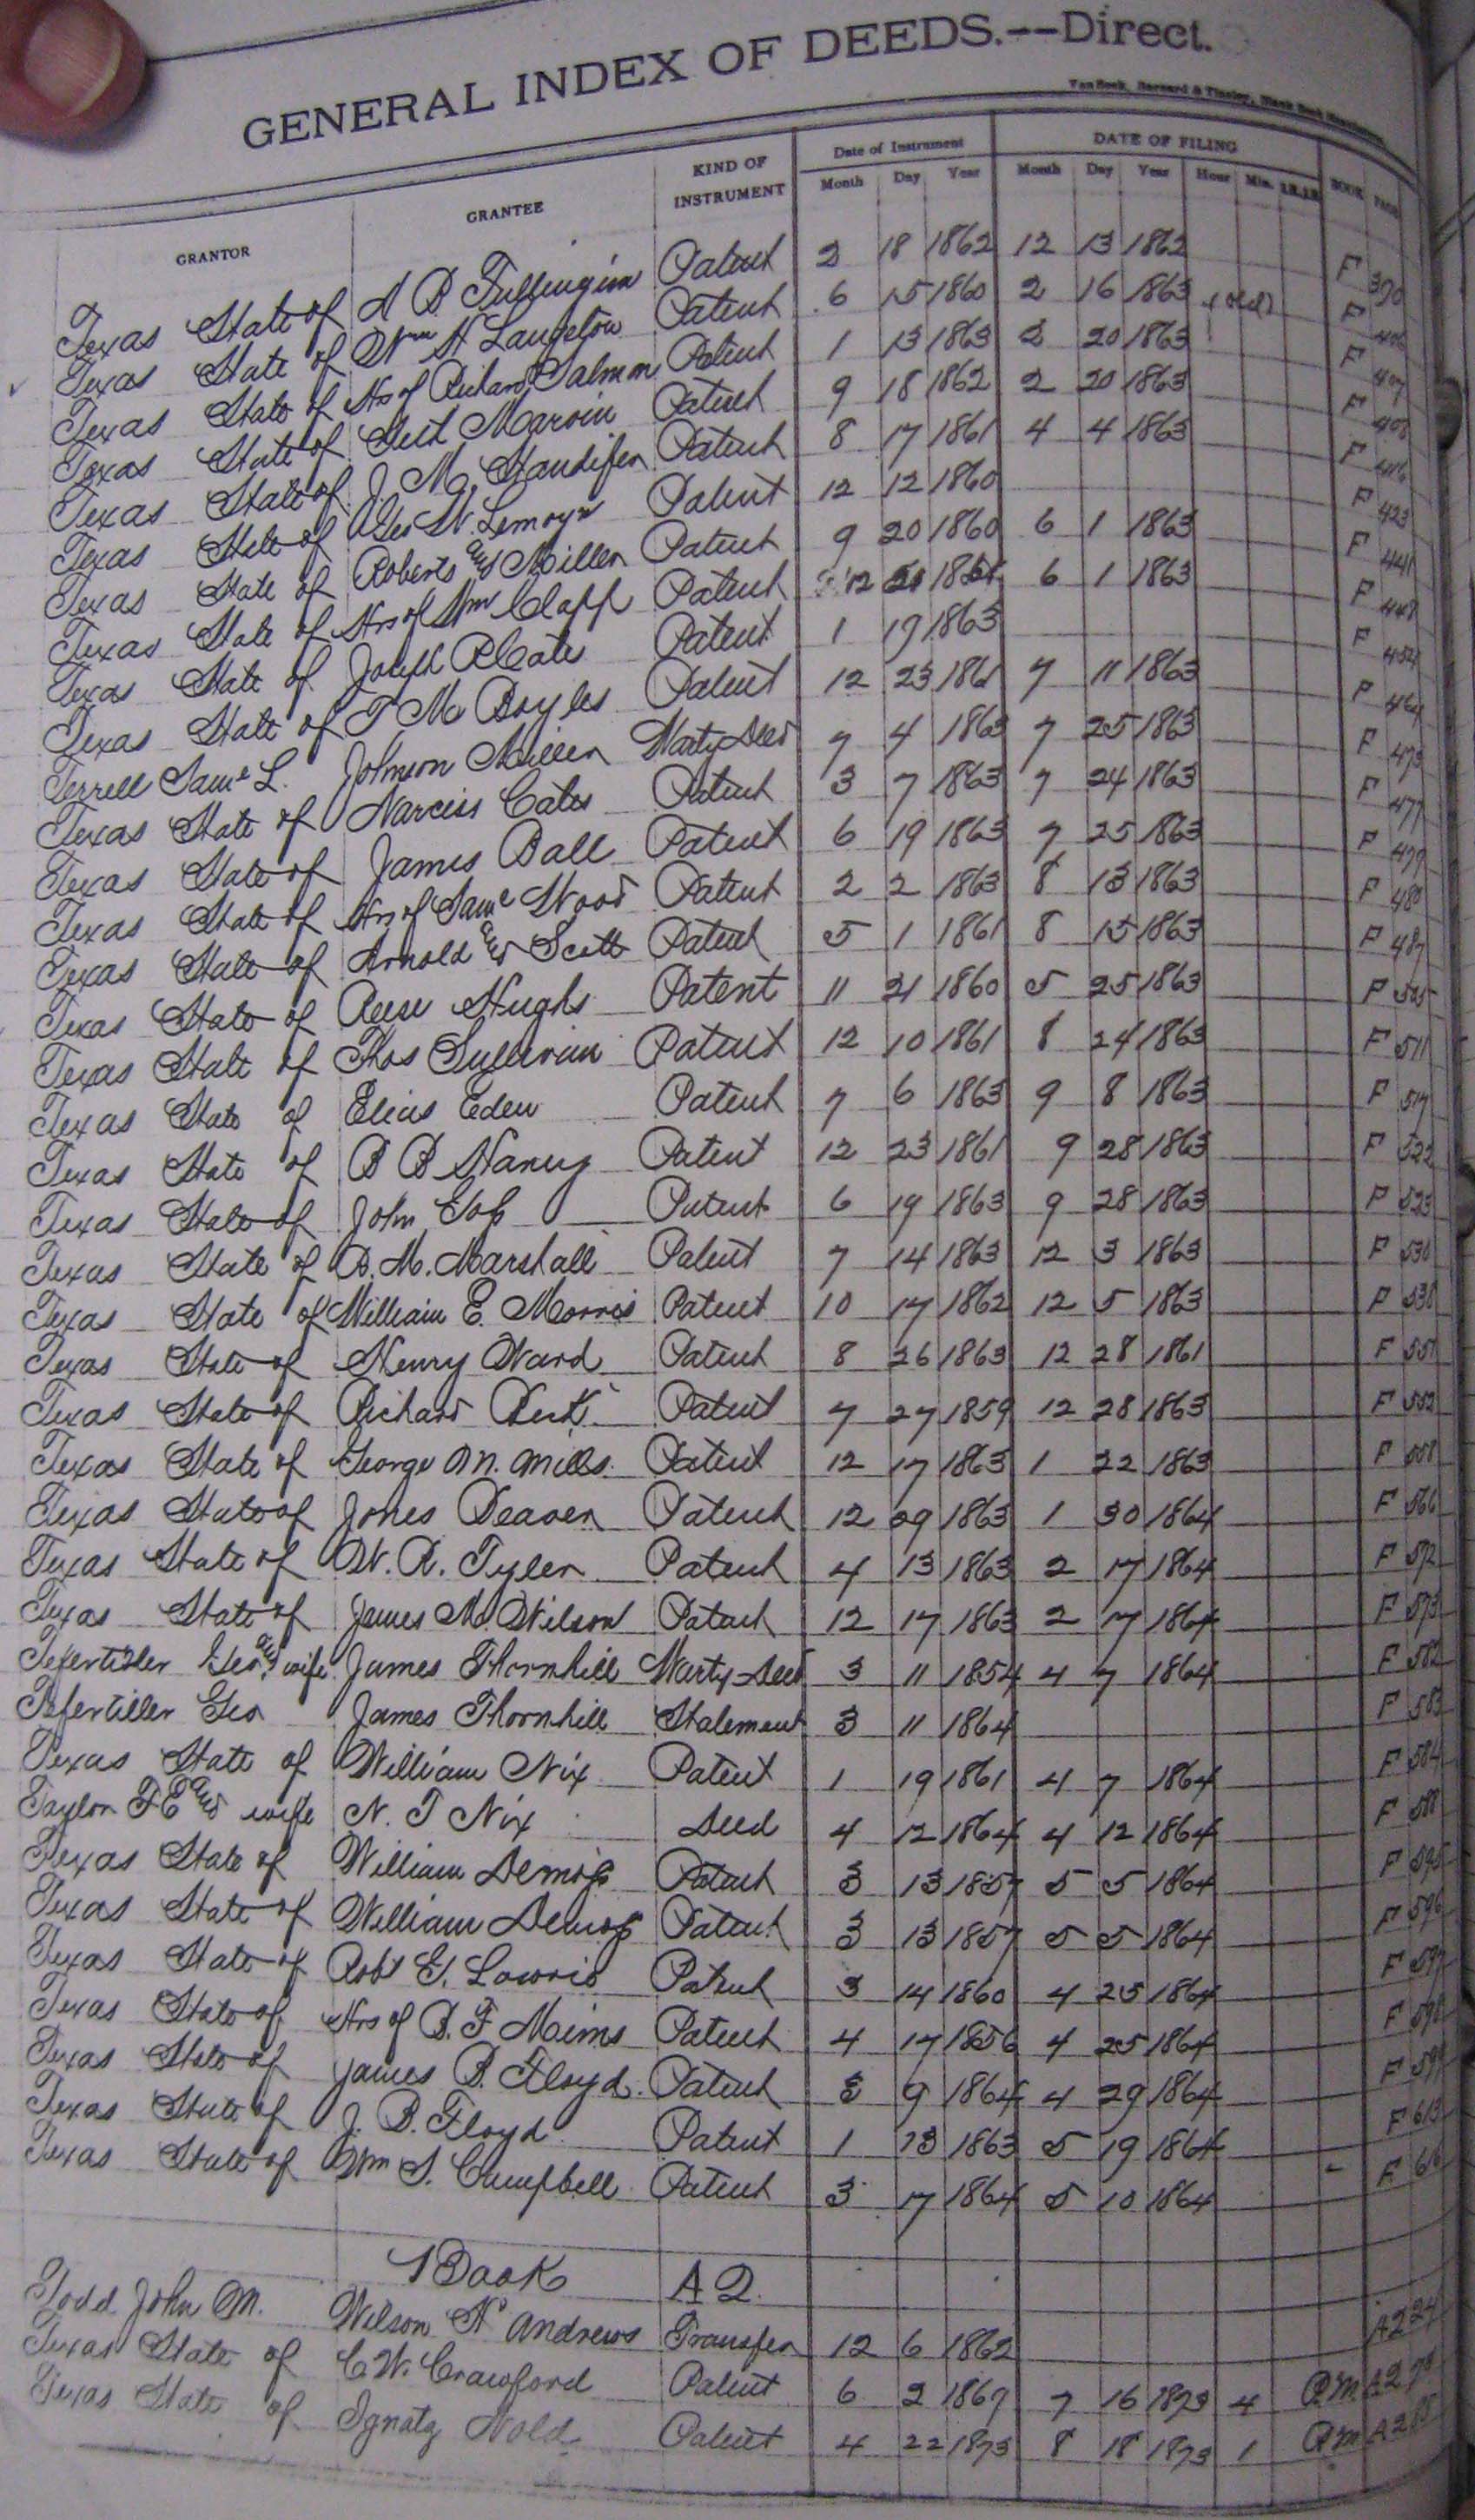 GENERAL INDEX OF DEEDS.--Direct.
GRANTOR GRANTEE KIND OF INSTRUMENT Date of Instrument Month Day Year DATE OF FILING Month Day Year Hour Min. BOOK PAGE
Texas State of A B Fullingim Patent 2 18 1862 12 13 1862 F 390
Texas State of Wm H Langston Patent 6 15 1860 2 16 1863 (old) F 406
Texas State of Hrs of Richard Salmon Patent 1 13 1863 2 20 1863 F 407
Texas State of Marvin Patent 9 18 1862 2 20 1863 F 408
Texas State of J. M. Standifer Patent 8 17 1861 4 4 1863 F 416
Texas State of Lemoyn Patent 12 12 1860 F 423
Texas State of Roberts and Miller Patent 9 20 1860 6 1 1863 F 441
Texas State of Hrs of Wm Clapp Patent 12 6 1 1863 F
Texas State of Joseph R Cates Patent 1 19 1863 F 454
Texas State of T M Boyles Patent 12 23 1861 7 11 1863 F 464
Terrell Saml L. Johnson Miller Warty Deed 7 4 1863 7 25 1863 F 473
Texas State of Narciss Cates Patent 3 7 1863 7 24 1863 F 477
Texas State of James Ball Patent 6 19 1863 7 25 1863 F 479
Texas State of Hrs of Saml Wood Patent 2 2 1863 8 13 1863 F 480
Texas State of Arnold and Scott Patent 5 1 1861 8 15 1863 F 487
Texas State of Reese Hughs Patent 11 21 1860 5 25 1863 F 505
Texas State of Thos Sullivan Patent 12 10 1861 8 24 1863 F 511
Texas State of Elias Eden Patent 7 6 1863 9 8 1863 F 517
Texas State of B B Haney Patent 12 23 1861 9 28 1863 F 522
Texas State of John Goss Patent 6 19 1863 9 28 1863 F 523
Texas State of D. M. Marshall Patent 7 14 1863 12 3 1863 F 530
Texas State of William E. Morris Patent 10 17 1862 12 5 1863 F 538
Texas State of Henry Ward Patent 8 26 1863 12 28 1861 F 551
Texas State of Richard Patent 7 27 1859 12 28 1863 F 552
Texas State of George M. Mills. Patent 12 17 1863 1 22 1863 F 558
Texas State of Jones Deaver Patent 12 29 1863 1 30 1864 F 566
Texas State of W. R. Tyler Patent 4 13 1863 2 17 1864 F 572
Texas State of James M. Wilson Patent 12 17 1863 2 17 1864 F 573
Tefertiller Geo. and wife James Thornhill Warty Deed 3 11 1854 4 7 1864 F 582
Tefertiller Geo James Thornhill Statement 3 11 1864 F 583
Texas State of William Nix Patent 1 19 1861 4 7 1864 F 584
Taylor F E and wife N. T Nix Deed 4 12 1864 4 12 1864 F 588
Texas State of William Demoss Patent 3 13 1857 5 5 1864 F 595
Texas State of William Demoss Patent 3 13 1857 5 5 1864 F 596
Texas State of Robt G. Lowrie Patent 3 14 1860 4 25 1864 F 597
Texas State of Hrs of B. F Mims Patent 4 17 1856 4 25 1864 F 598
Texas State of James B. Floyd. Patent 3 9 1864 4 29 1864 F 599
Texas State of J. B. Floyd Patent 1 13 1863 5 19 1864 F 613
Texas State of Wm S. Campbell Patent 3 17 1864 5 10 1864 F
Book A2.
Todd John M. Wilson N Andrews Transfer 12 6 1862 A2 24
Texas State of C W. Crawford Patent 6 2 1869 7 16 1873 4 P.M. A2
Texas State of Ignatz Nold Patent 4 22 1873 8 18 1873 1 P.M A2